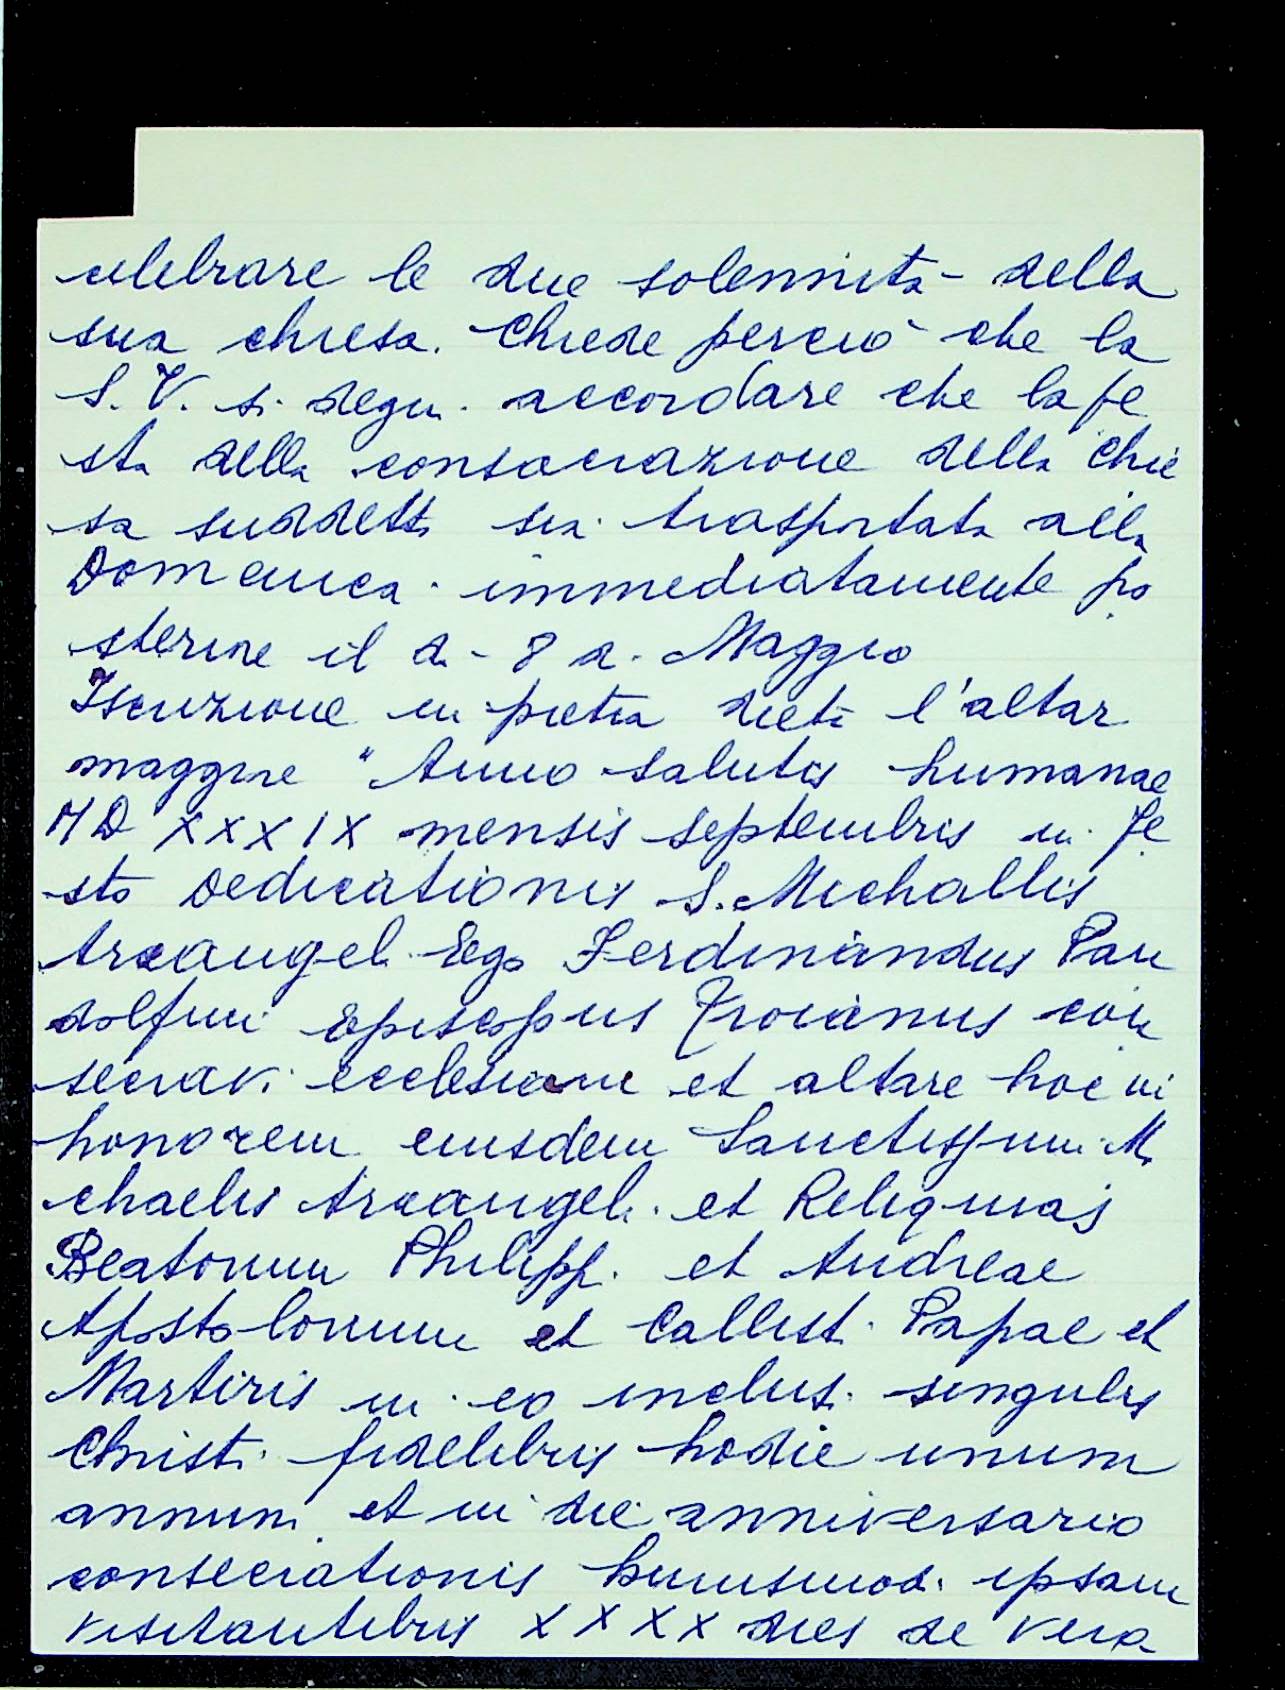 celebrare le due solennità della
sua chiesa. Chiede perciò che la
S. V. si degni accordare che la fe
sta della consacrazione della Chie
sa suddetta sia trasportata alla
Domenica immediatamente po
steriore il dì 8 di Maggio
Iscrizione in pietra dietro l'altar
maggiore "Anno salutis humanae
MD XXXIX mensis septembris in Fe
sto Dedicationis S. Michallis
Arcangeli Ego Ferdinandus Pan
dolfini Episcopus Troianus con
secravi ecclesiam et altare hoc in
honorem eiusdem Sanctissimi Mi
chaelis Arcangeli et Reliquias
Beatorum Philippi et Andreae
Apostolorum et Callisti Papae et
Martiris in eo inclusi singulis
Christi fidelibus hodie unum
annum et in die anniversario
consecrationis huiusmodi ipsam
visitantibus XXXX dies de vera